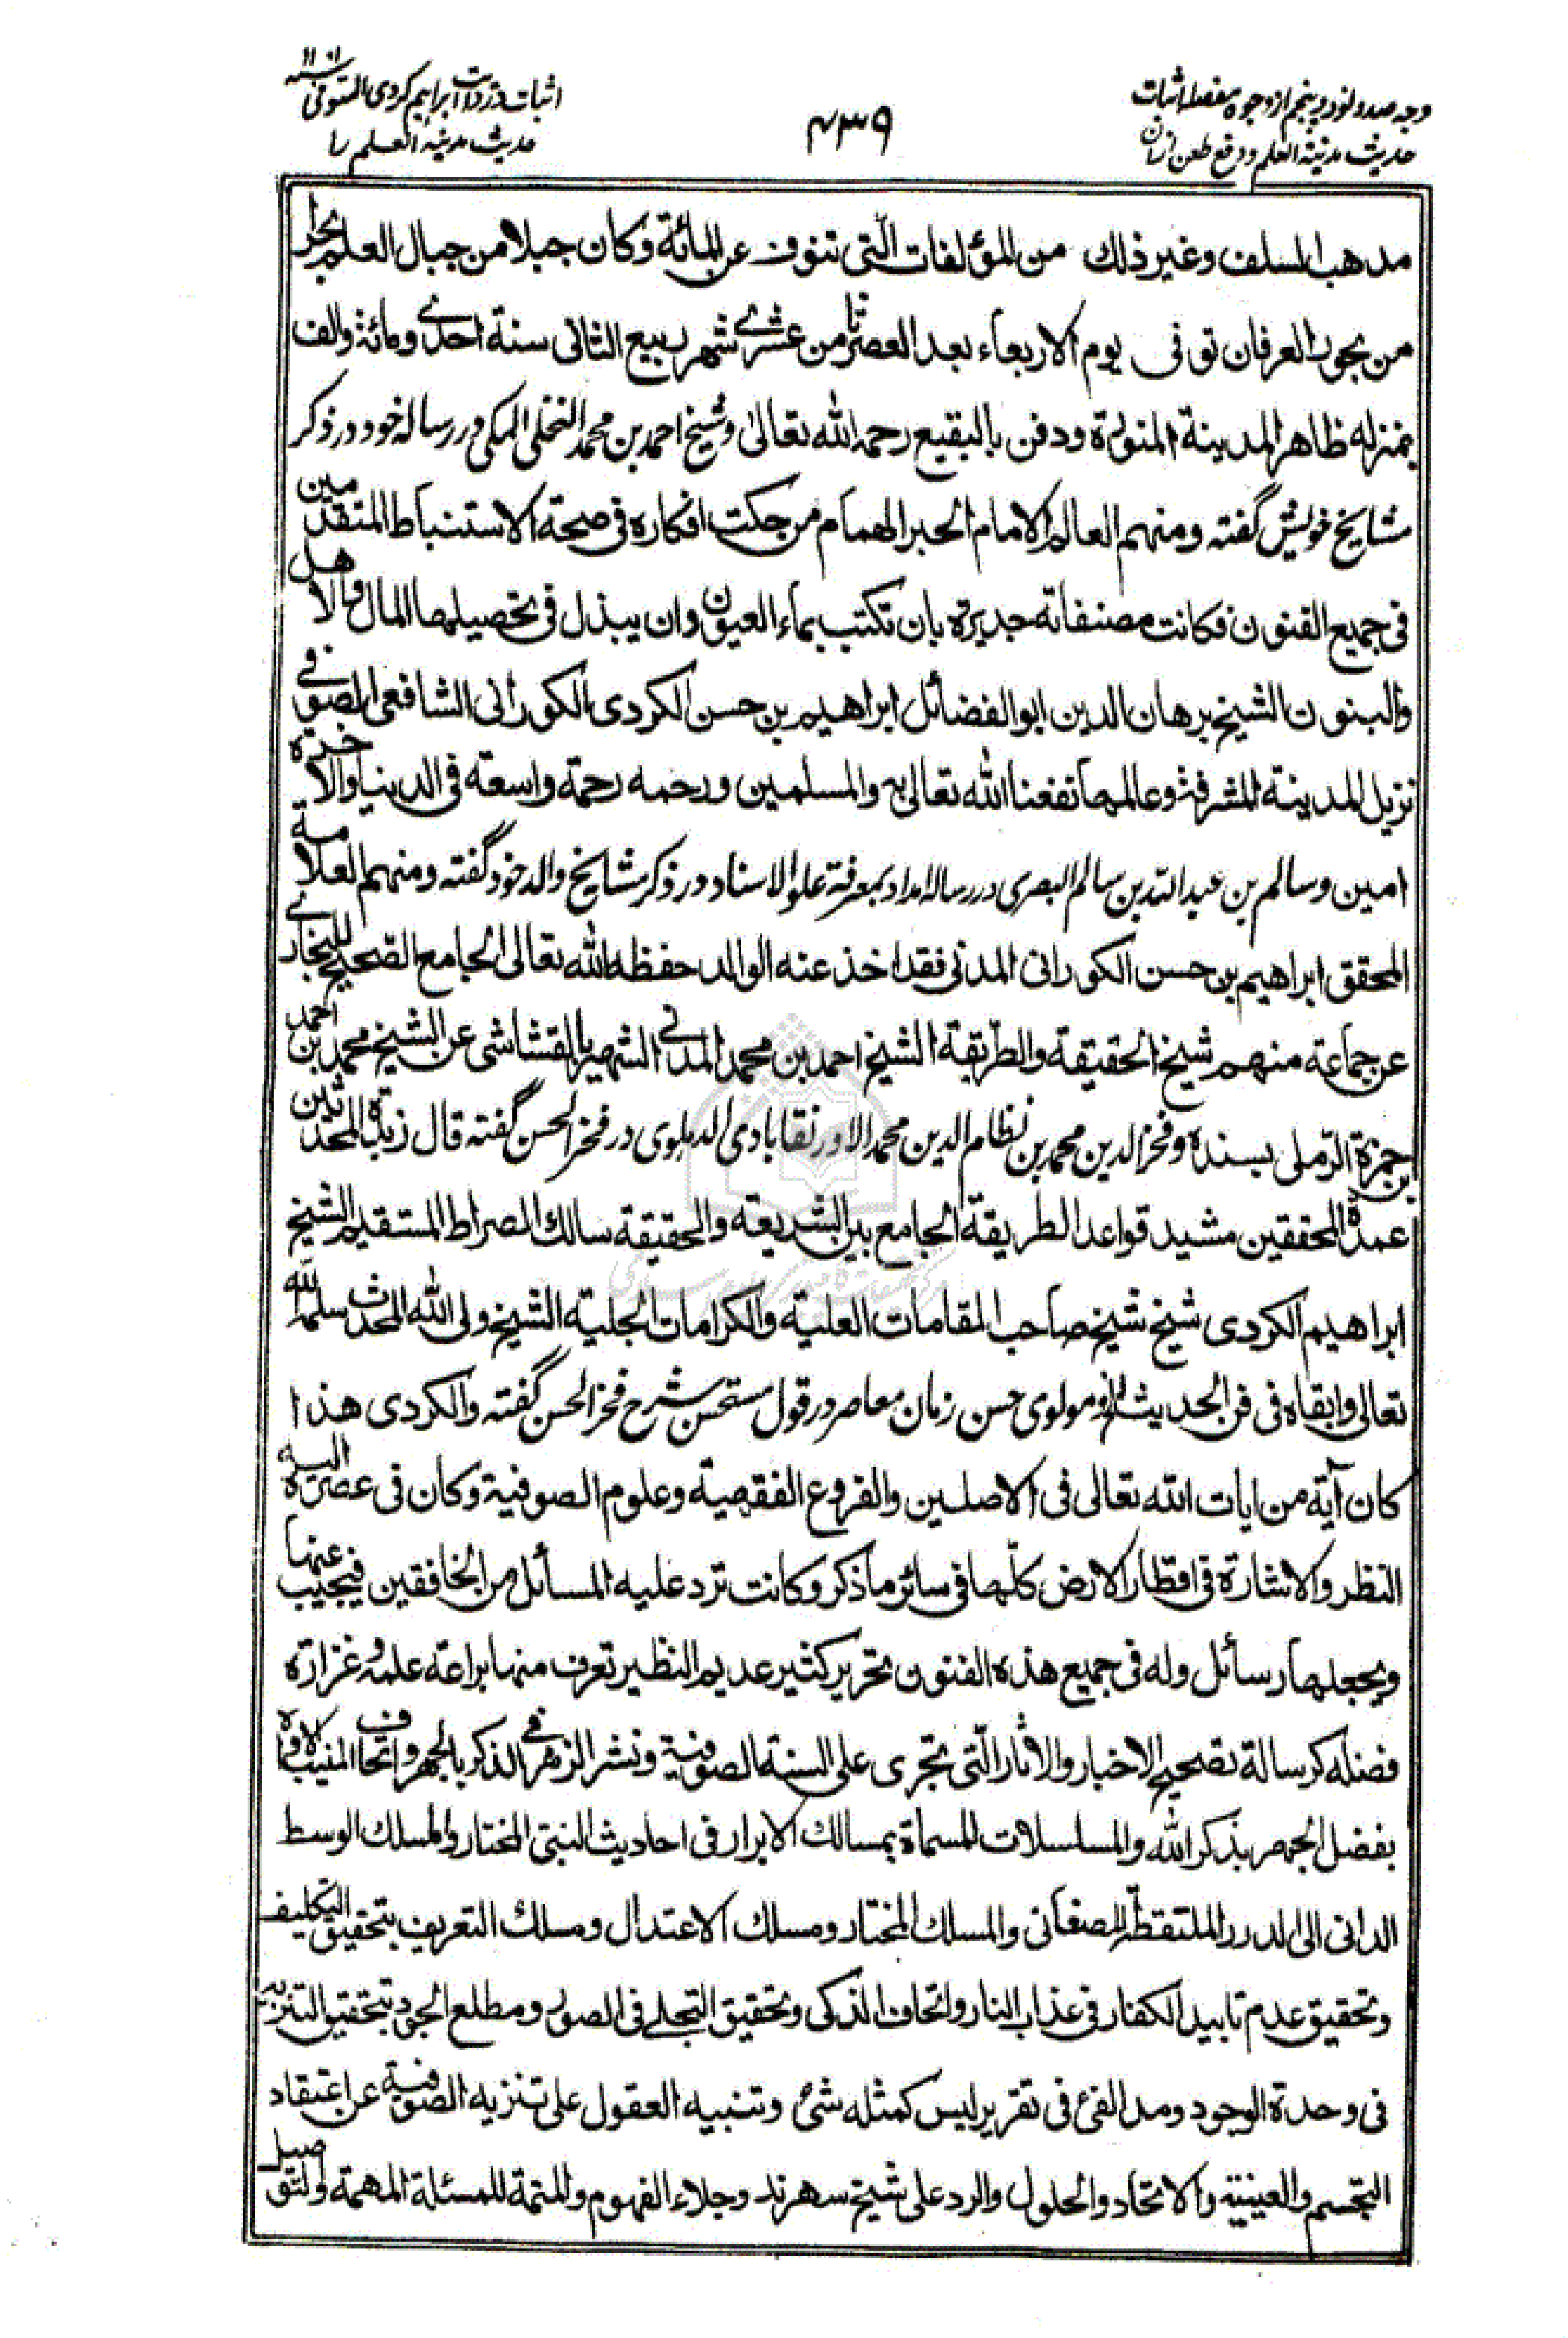 وجه صد و نود و پنجم از وجوه مفصله اثبات
حدیث مدینة العلم و دفع طعن از آن
۴۳۹
اثبات ابراهیم کردی المتوفی سنه ۱۱۰۱
حدیث مدینه العلم را
مذهب السلف وغير ذلك من المؤلفات التی تنوف عن المائة وكان جبلا من جبال العلم بحرا
من بحور العرفان توفی يوم الاربعاء بعد العصر ثامن عشری شهر ربيع الثانی سنة احدی ومائة والف
بمنزله ظاهر المدينة المنورة ودفن بالبقيع رحمه الله تعالى وشیخ احمد بن محمد النخلی المکی در رساله خود در ذکر
مشایخ خویش گفته ومنهم العالم الامام الحبر الهمام من حكت افكاره فی صحة الاستنباط المتقدمين
فی جميع الفنون فكانت مصنفاته جديرة بان تكتب بماء العيون وان يبذل فی تحصيلها المال والاهل
والبنون الشيخ برهان الدين ابو الفضائل ابراهيم بن حسن الكردی الكورانی الشافعی الصوفی
نزيل المدينة المشرفة وعالمها نفعنا الله تعالی به والمسلمين ورحمه رحمة واسعة فی الدنيا والآخرة
امين وسالم بن عبد الله بن سالم البصری در رساله امداد بمعرفة علو الاسناد در ذکر مشایخ والد خود گفته ومنهم العلامة
المحقق ابراهيم بن حسن الكورانی المدنی فقد اخذ عنه الوالد حفظه الله تعالی الجامع الصحيح للبخاری
عن جماعة منهم شيخ الحقيقة والطريقة الشيخ احمد بن محمد المدنی الشهير بالقشاشی عن الشيخ محمد بن احمد
بن حمزة الرملی بسنده وفخر الدین محمد بن نظام الدین محمد الاورنقابادی الدهلوی در فخر الحسن گفته قال زبدة المحدثين
عمدة المحققين مشيد قواعد الطريقة الجامع بين الشريعة والحقيقة سالك الصراط المستقيم الشيخ
ابراهيم الكردی شيخ شيخ صاحب المقامات العلية والكرامات الجلية الشيخ ولی الله المحدث سلمه الله
تعالی وابقاه فی فن الحديث الخ ومولوی حسن زمان معاصر در قول مستحسن شرح فخر الحسن گفته والكردی هذا
كان آية من ايات الله تعالی فی الاصلين والفروع الفقهية وعلوم الصوفية وكان فی عصره اليه
النظر والاشارة فی اقطار الارض كلها فی سائر ما ذكر وكانت ترد عليه المسائل من الخافقين فيجيب عنها
ويجعلها رسائل وله فی جميع هذه الفنون تحرير كثير عديم النظير تعرف منها براعة علمه وغزارة
فضله كرسالة تصحيح الاخبار والآثار التی تجری علی السنة الصوفية ونشر الزهر فی الذكر بالجهر واتحاف المنيب الاواه
بفضل الجهر بذكر الله والمسلسلات المسماة بمسالك الابرار فی احاديث النبی المختار والمسلك الوسط
الدانی الی الدرر الملتقط للصغانی والمسلك المختار ومسلك الاعتدال ومسلك التعريف بتحقيق التكليف
وتحقيق عدم تابيد الكفار فی عذاب النار واتحاف الذكی وتحقيق التجلی فی الصور ومطلع الجود بتحقيق التنزيه
فی وحدة الوجود ومد الفیء فی تقرير ليس كمثله شیء وتنبيه العقول علی تنزيه الصوفية عن اعتقاد
التجسم والعينية والاتحاد والحلول والرد علی شيخ سهرند وجلاء الفهوم والمتمة للمسئلة المهمة